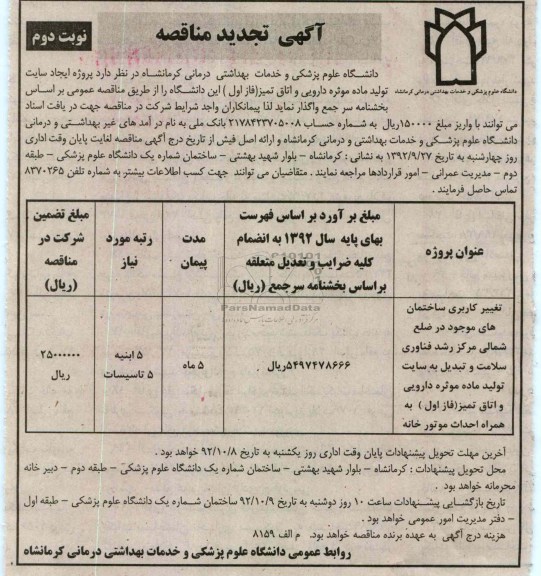 آگهی تجدید مناقصه
نوبت دوم
دانشگاه علوم پزشکی و خدمات بهداشتی درمانی کرمانشاه
دانشگاه علوم پزشکی و خدمات بهداشتی درمانی کرمانشاه در نظر دارد پروژه ایجاد سایت
تولید ماده موثره دارویی و اتاق تمیز(فاز اول ) این دانشگاه را از طریق مناقصه عمومی بر اساس
بخشنامه سر جمع واگذار نماید لذا پیمانکاران واجد شرایط شرکت در مناقصه جهت در یافت اسناد
می توانند با واریز مبلغ ۱۵۰۰۰۰ریال به شماره حساب ۲۱۷۸۴۲۳۷۰۵۰۰۸ بانک ملی به نام در آمد های غیر بهداشتی و درمانی
دانشگاه علوم پزشکی و خدمات بهداشتی و درمانی کرمانشاه و ارائه اصل فیش از تاریخ درج آگهی مناقصه لغایت پایان وقت اداری
روز چهارشنبه به تاریخ ۱۳۹۲/۹/۲۷ به نشانی : کرمانشاه - بلوار شهید بهشتی - ساختمان شماره یک دانشگاه علوم پزشکی - طبقه
دوم - مدیریت عمرانی - امور قراردادها مراجعه نمایند . متقاضیان می توانند جهت کسب اطلاعات بیشتر به شماره تلفن ۸۳۷۰۲۶۵
تماس حاصل فرمایند .
عنوان پروژه
مبلغ بر آورد بر اساس فهرست
بهای پایه سال ۱۳۹۲ به انضمام
کلیه ضرایب و تعدیل متعلقه
براساس بخشنامه سرجمع (ریال)
مدت
پیمان
رتبه مورد
نیاز
مبلغ تضمین
شرکت در
مناقصه
(ریال)
تغییر کاربری ساختمان
های موجود در ضلع
شمالی مرکز رشد فناوری
سلامت و تبدیل به سایت
تولید ماده موثره دارویی
و اتاق تمیز(فاز اول ) به
همراه احداث موتور خانه
۵۴۹۷۴۷۸۶۶۶ریال
۵ ماه
۵ ابنیه
۵ تاسیسات
۲۵۰۰۰۰۰۰
ریال
ParsNamadData
آخرین مهلت تحویل پیشنهادات پایان وقت اداری روز یکشنبه به تاریخ ۹۲/۱۰/۸ خواهد بود .
محل تحویل پیشنهادات : کرمانشاه - بلوار شهید بهشتی - ساختمان شماره یک دانشگاه علوم پزشکی - طبقه دوم - دبیر خانه
محرمانه خواهد بود .
تاریخ بازگشایی پیشنهادات ساعت ۱۰ روز دوشنبه به تاریخ ۹۲/۱۰/۹ ساختمان شماره یک دانشگاه علوم پزشکی - طبقه اول
- دفتر مدیریت امور عمومی خواهد بود .
هزینه درج آگهی به عهده برنده مناقصه خواهد بود. م الف ۸۱۵۹
روابط عمومی دانشگاه علوم پزشکی و خدمات بهداشتی درمانی کرمانشاه